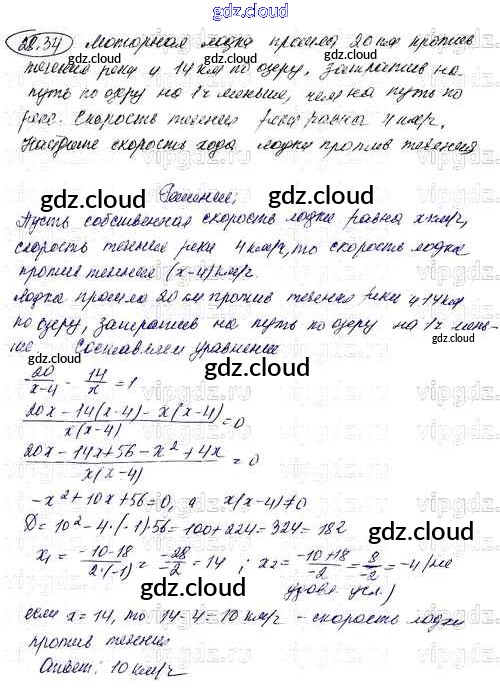 gdz.cloud
28.34 Моторная лодка прошла 20 км против
течения реки и 14 км по озеру, затратив на
путь по озеру на 1 ч меньше, чем на путь по
реке. Скорость течения реки равна 4 км/ч.
Найдите скорость хода лодки против течения
gdz.cloud gdz.cloud
Решение:
gdz.cloud
Пусть собственная скорость лодки равна x км/ч,
скорость течения реки 4 км/ч, то скорость лодки
против течения (x-4) км/ч.
gdz.cloud gdz.cloud
Лодка прошла 20 км против течения реки и 14 км
по озеру, затратив на путь по озеру на 1 ч мень-
ше. Составляем уравнение
gdz.cloud gdz.cloud
20/(x-4) - 14/x = 1
gdz.cloud
(20x-14(x-4)-x(x-4))/(x(x-4)) = 0
(20x-14x+56-x²+4x)/(x(x-4)) = 0
-x²+10x+56=0, а x(x-4)≠0
D=10²-4·(-1)56=100+224=324=18²
gdz.cloud
x₁ = (-10-18)/(2·(-1)) = -28/-2 = 14 ; x₂ = (-10+18)/-2 = 8/-2 = -4 (не
удовл. усл.)
gdz.cloud
если x=14, то 14-4=10 км/ч - скорость лодки
против течения
Ответ: 10 км/ч
gdz.cloud gdz.cloud